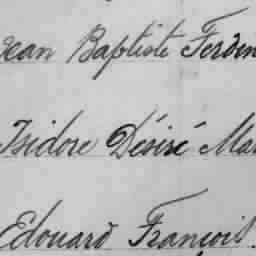 Jean Baptiste Ferdin
Isidore Désiré Mar
Edouard François.